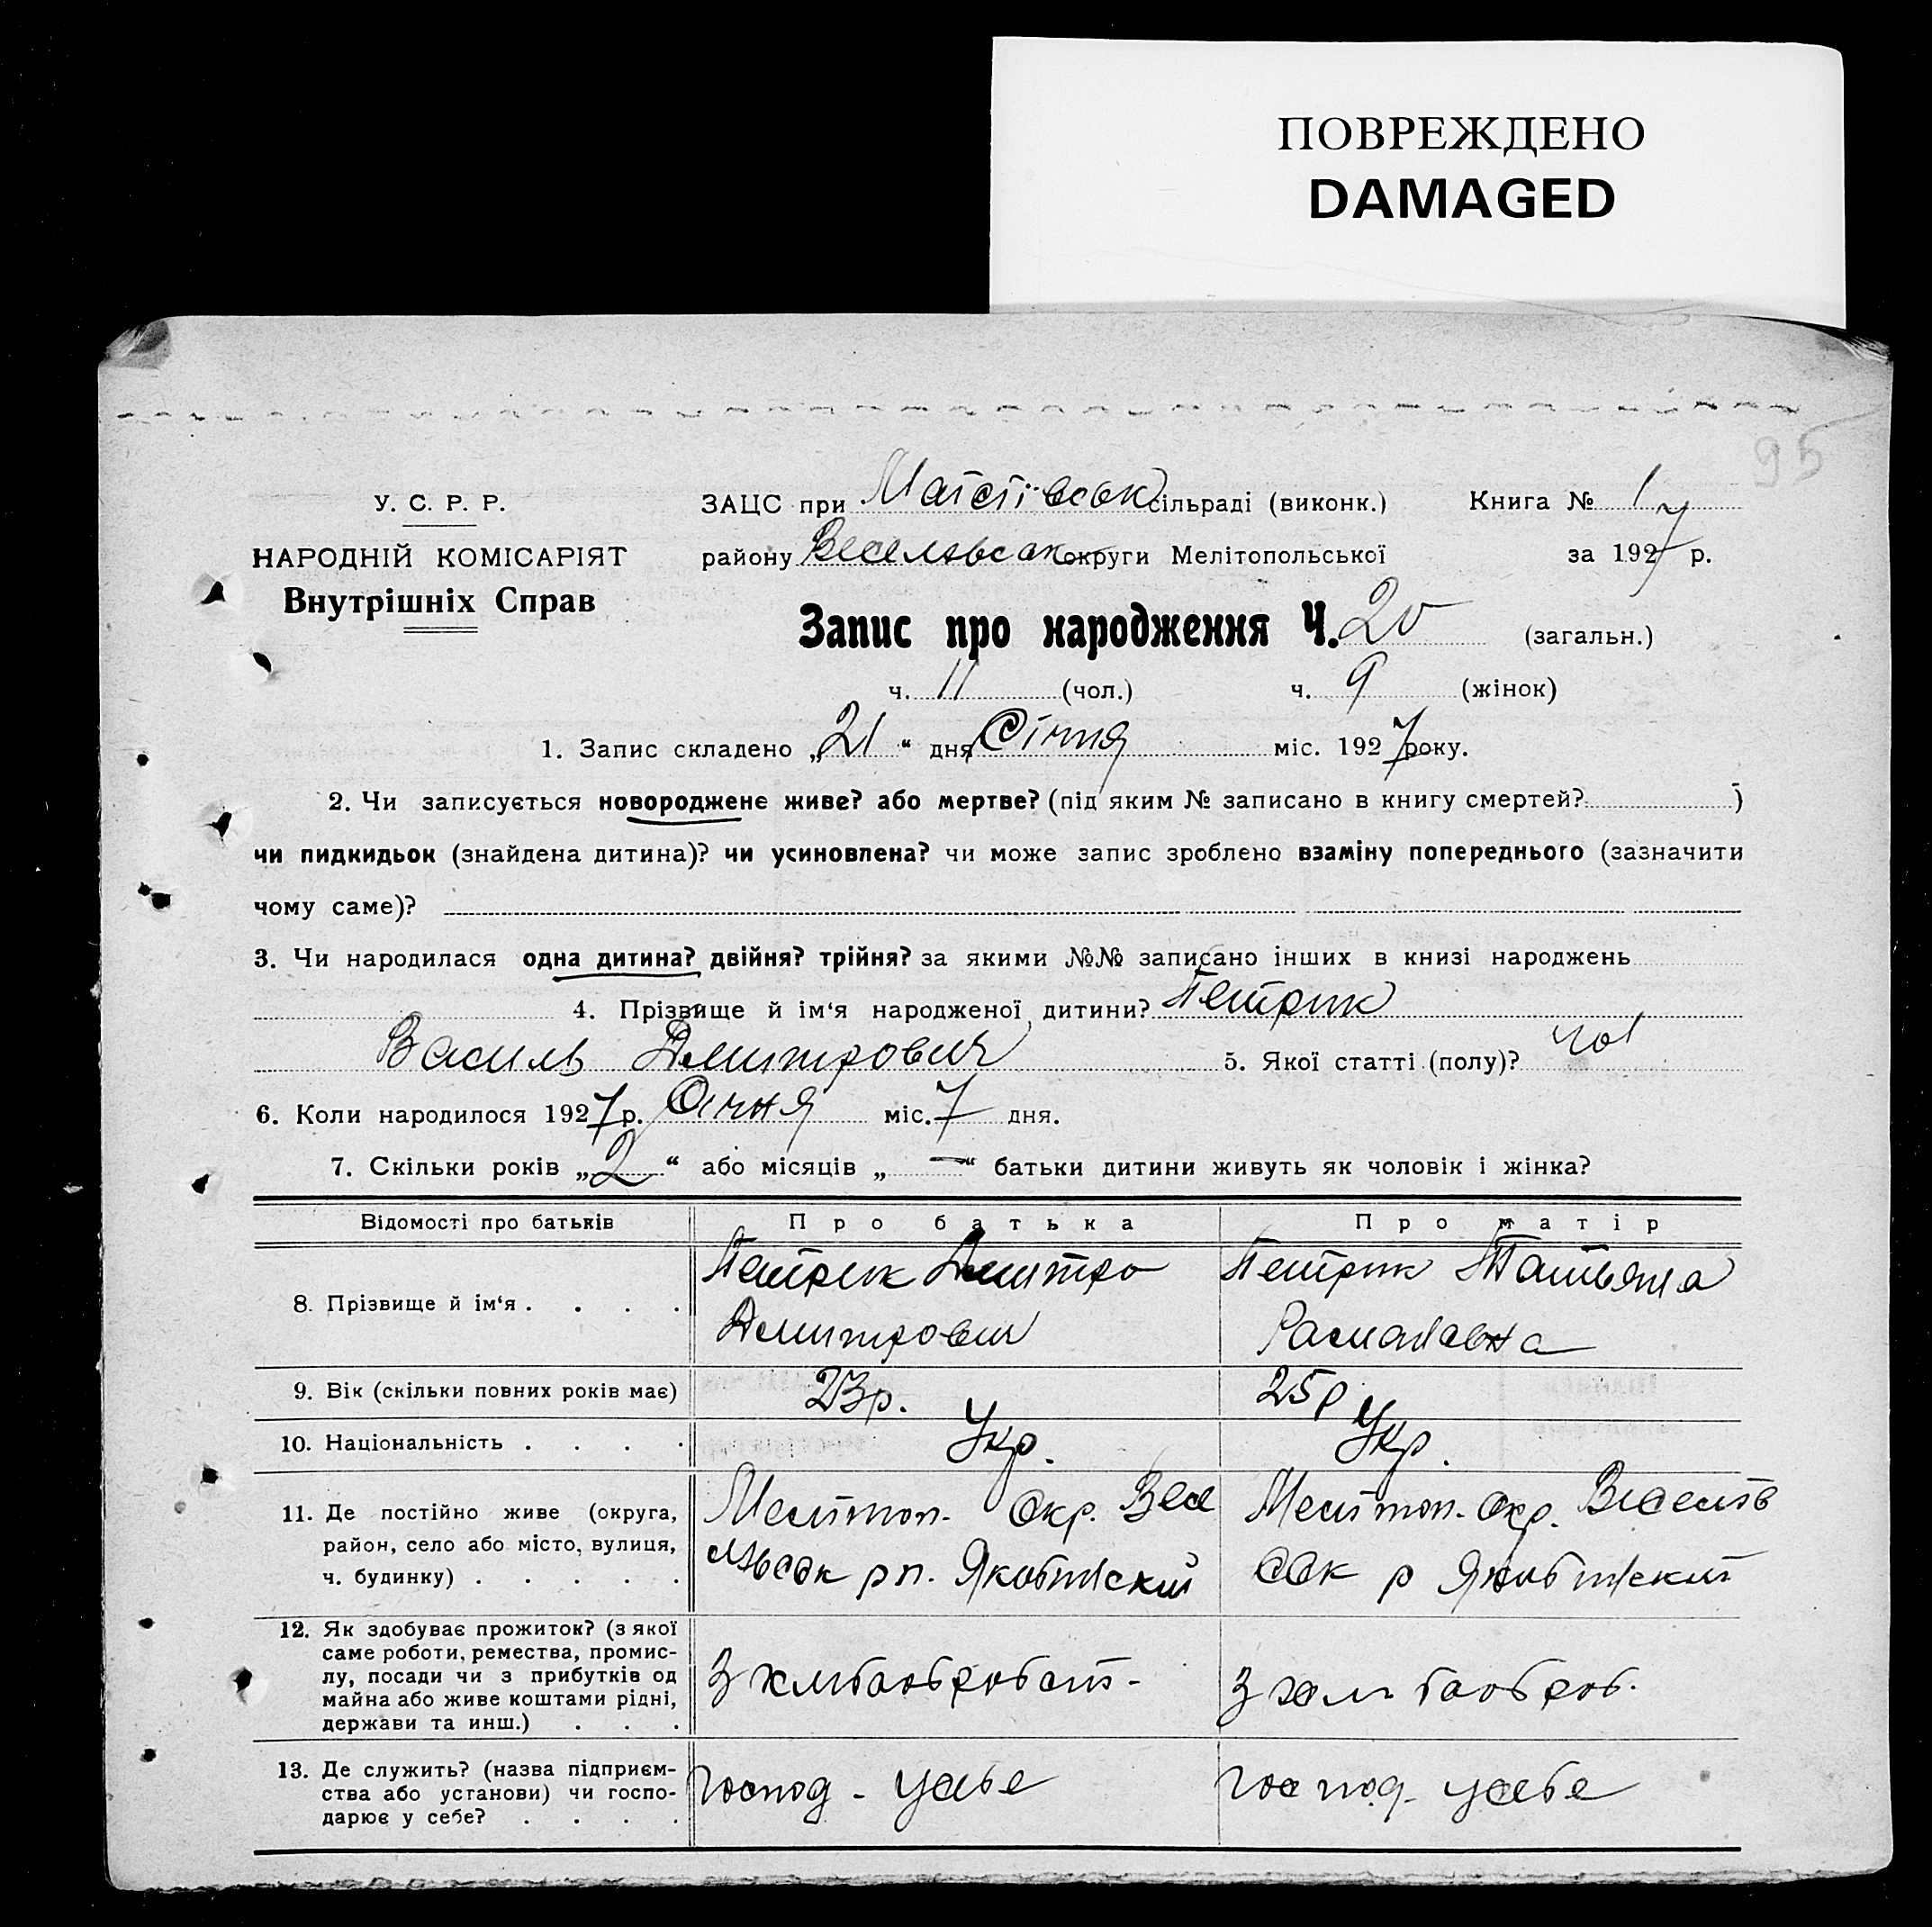 ПОВРЕЖДЕНО
DAMAGED
95
У. С. Р. Р.
НАРОДНІЙ КОМІСАРІЯТ
Внутрішніх Справ
ЗАЦС при сільраді (виконк.) Книга № 1
району Весельвськ округи Мелітопольської за 1927 р.
Запис про народження Ч. 20 (загальн.)
ч. 11 (чол.) ч. 9 (жінок)
1. Запис складено „21“ дня Січня міс. 1927 року.
2. Чи записується новороджене живе? або мертве? (під яким № записано в книгу смертей? )
чи пидкидьок (знайдена дитина)? чи усиновлена? чи може запис зроблено взаміну попереднього (зазначити
чому саме)?
3. Чи народилася одна дитина? двійня? трійня? за якими №№ записано інших в книзі народжень
4. Прізвище й ім‘я народженої дитини? Петрик
Василь Дмитрович 5. Якої статті (полу)? чол
6. Коли народилося 1927 р. Січня міс. 7 дня.
7. Скільки років „2“ або місяців „—“ батьки дитини живуть як чоловік і жінка?
Відомості про батьків Про батька Про матір
8. Прізвище й ім‘я . . . .
Петрик Дмитро
Дмитрович
Петрик Татьяна
9. Вік (скільки повних років має) 23р. 25р
10. Національність . . . . Укр. Укр.
11. Де постійно живе (округа,
район, село або місто, вулиця,
ч. будинку) . . . . .
Мелітоп. Окр. Весе
львськ рп.
Мелітоп. Окр. Весельв
ськ р
12. Як здобуває прожиток? (з якої
саме роботи, ремества, промис-
лу, посади чи з прибутків од
майна або живе коштами рідні,
держави та инш.) . . .
З хлибаобробіт-
З хли баоброб.
13. Де служить? (назва підприєм-
ства або установи) чи госпо-
дарює у себе? . . . .
Господ - усебе
Господ - усебе